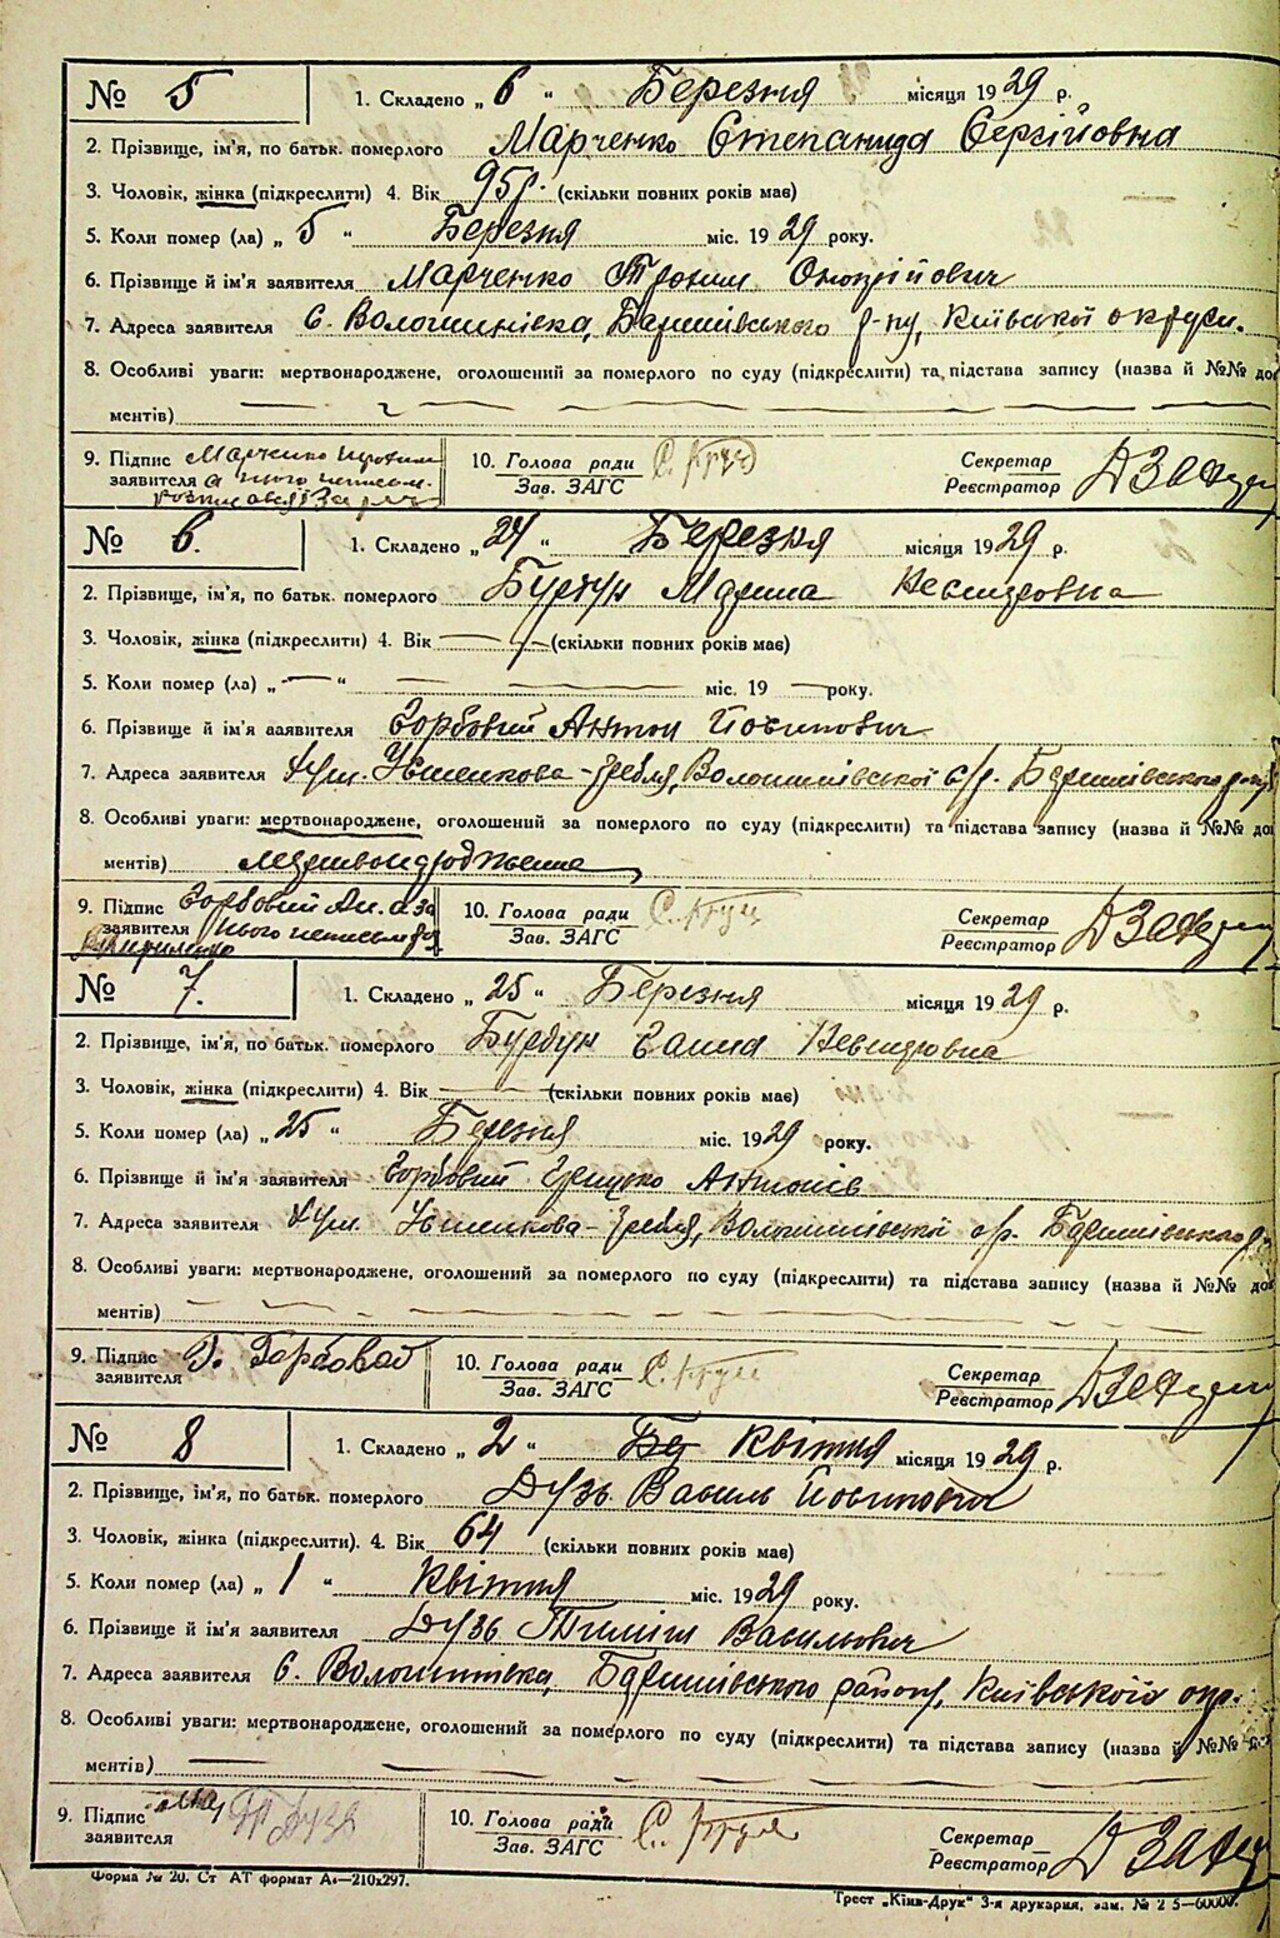 № 5 1. Складено „ 6 “ Березня місяця 1929 р.
2. Прізвище, ім'я, по батьк. померлого Марченко Степанида Сергійовна
3. Чоловік, жінка (підкреслити) 4. Вік 95р. (скільки повних років має)
5. Коли помер (ла) „ 5 “ Березня міс. 1929 року.
6. Прізвище й ім'я заявителя Марченко Трохим Онопрійович
7. Адреса заявителя С. Волошинівка, Баришівського р-ну, Київської округи.
8. Особливі уваги: мертвонароджене, оголошений за померлого по суду (підкреслити) та підстава запису (назва й №№ до
ментів)
9. Підпис Марченко Трохим 10. Голова ради Секретар
заявителя а нього неписьм. Зав. ЗАГС Реєстратор
№ 6. 1. Складено „ 24 “ Березня місяця 1929 р.
2. Прізвище, ім'я, по батьк. померлого Марина
3. Чоловік, жінка (підкреслити) 4. Вік (скільки повних років має)
5. Коли помер (ла) „ — “ міс. 19 — року.
6. Прізвище й ім'я заявителя Горбовий Антон Йосипович
7. Адреса заявителя Гребля, Волошинівської с/р. Баришівського
8. Особливі уваги: мертвонароджене, оголошений за померлого по суду (підкреслити) та підстава запису (назва й №№ до
ментів) мертвонародженна
9. Підпис Горбовий Ан. а за 10. Голова ради Секретар
заявителя нього неписьм Зав. ЗАГС Реєстратор
№ 7. 1. Складено „ 25 “ Березня місяця 1929 р.
2. Прізвище, ім'я, по батьк. померлого Ганна
3. Чоловік, жінка (підкреслити) 4. Вік (скільки повних років має)
5. Коли помер (ла) „ 25 “ Березня міс. 1929 року.
6. Прізвище й ім'я заявителя Горбовий Грицько Антонів
7. Адреса заявителя Гребля, Волошинівської с/р. Баришівського
8. Особливі уваги: мертвонароджене, оголошений за померлого по суду (підкреслити) та підстава запису (назва й №№ до
ментів)
9. Підпис Г. Горбовой 10. Голова ради Секретар
заявителя Зав. ЗАГС Реєстратор
№ 8 1. Складено „ 2 “ Квітня місяця 1929 р.
2. Прізвище, ім'я, по батьк. померлого Дузь Василь Йосипович
3. Чоловік, жінка (підкреслити). 4. Вік 64 (скільки повних років має)
5. Коли помер (ла) „ 1 “ Квітня міс. 1929 року.
6. Прізвище й ім'я заявителя Дузь Тиміш Васильович
7. Адреса заявителя С. Волошинівка, Баришівського району, Київської окр.
8. Особливі уваги: мертвонароджене, оголошений за померлого по суду (підкреслити) та підстава запису (назва й №№ до
ментів)
9. Підпис Дузь 10. Голова ради Секретар
заявителя Зав. ЗАГС Реєстратор
Форма № 20. Ст АТ формат А4—210х297.
Трест „Київ-Друк“ 3-я друкарня, зам. № 2 5—60000.